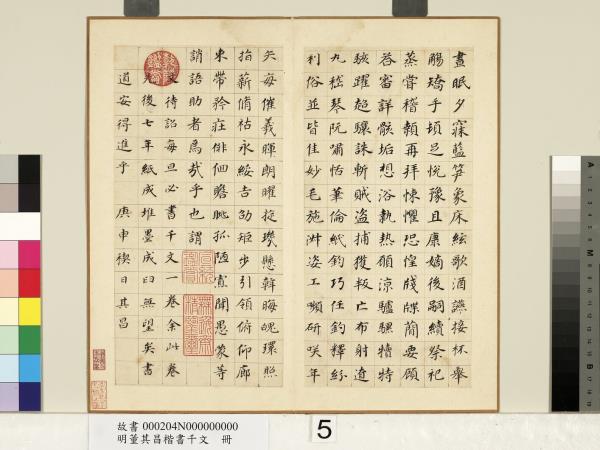 晝眠夕寐藍笋象床絃歌酒讌接杯舉
觴矯手頓足悅豫且康嫡後嗣續祭祀
蒸嘗稽顙再拜悚懼恐惶牋牒簡要顧
答審詳骸垢想浴執熱願涼驢騾犢特
駭躍超驤誅斬賊盜捕獲叛亡布射遼
丸嵇琴阮嘯恬筆倫紙鈞巧任釣釋紛
利俗並皆佳妙毛施淑姿工顰研笑年
矢每催羲暉朗曜旋璣懸斡晦魄環照
指薪脩祜永綏吉劭矩步引領俯仰廊
束帶矜莊徘徊瞻眺孤陋寡聞愚蒙等
誚語助者焉哉乎也謂
文待詔每旦必書千文一卷余此卷
先後七年紙成堆墨成臼無望矣書
道安得進乎 庚申禊日其昌
故書 000204N000000000
明董其昌楷書千文 冊
5